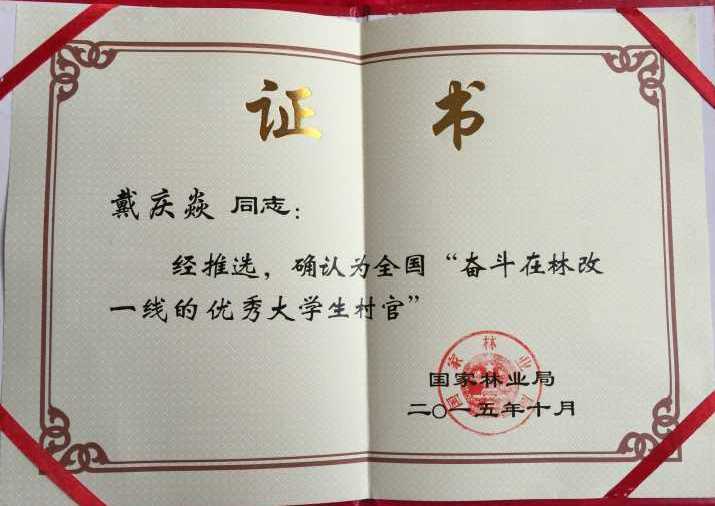 证书
戴庆焱 同志：
经推选，确认为全国“奋斗在林改
一线的优秀大学生村官”
国家林业局
国家林业局
二〇一五年十月